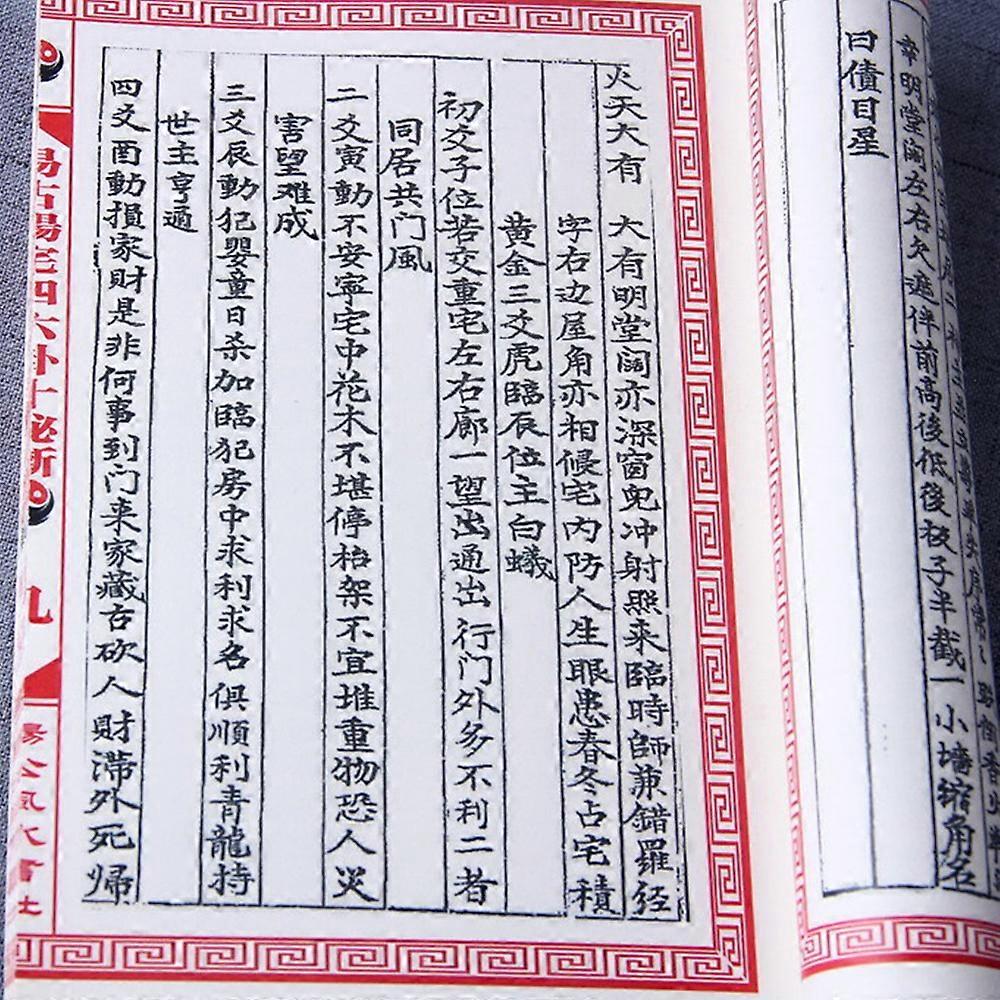 章明堂阔左右欠遮伴前高後低後枝子半截一小墙縮角名
曰債目星
火天大有 大有明堂闊亦深窗兜冲射照来臨時師兼錯羅经
字右边屋角亦相侵宅内防人生眼患春冬占宅積
黄金三爻虎臨辰位主白蟻
初爻子位若交重宅左右廊一望出通出行门外多不利二者
同居共门風
二爻寅動不安寧宅中花木不堪停枱架不宜堆重物恐人災
害望难成
三爻辰動犯嬰童日杀加臨犯房中求利求名俱順利青龍持
世主亨通
四爻酉動損家財是非何事到门来家藏古砍人財滞外死歸
九